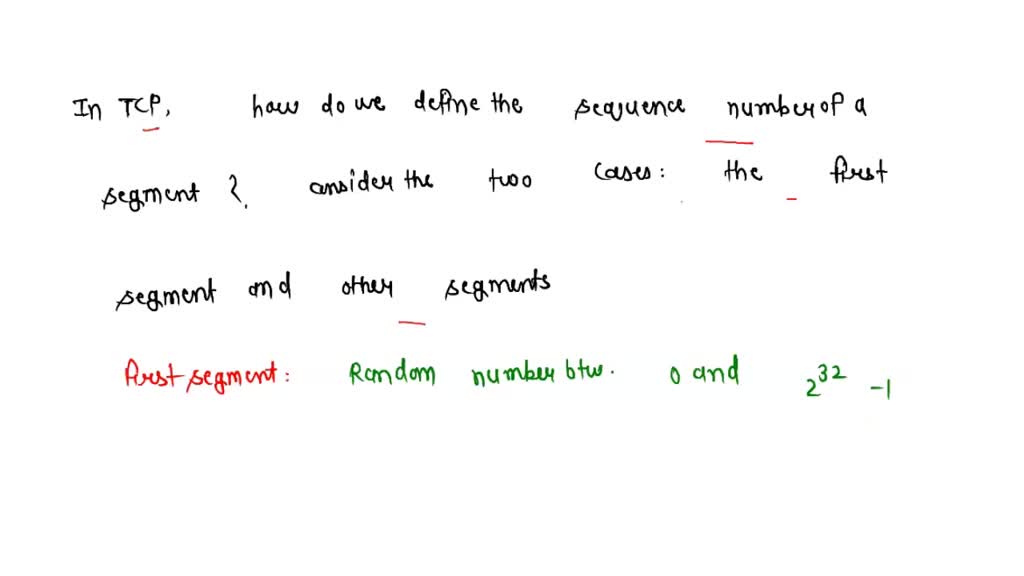 In TCP, how do we define the sequence number of a
segment ? consider the two cases: the first
segment and other segments
first segment: Random number btw. 0 and 2^32 -1